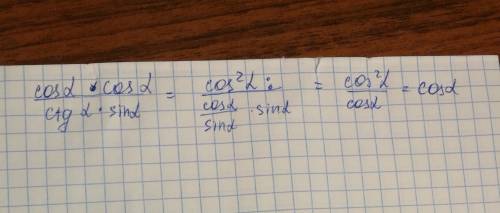 cosα · cosα / ctgα · sinα = cos²α : / cosα/sinα · sinα = cos²α / cosα = cosα